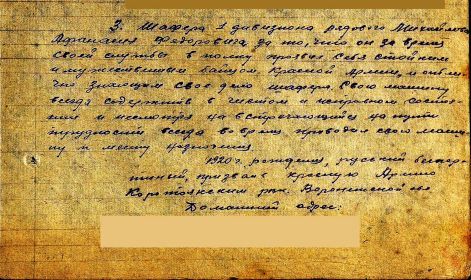 3. Шофера 1 дивизиона рядового Михайлова
Афанасия Федоровича за то, что он за время
своей службы в полку проявил себя стойким
и мужественным бойцом Красной Армии, и отлич
но знающим свое дело шофера. Свою машину
всегда содержит в чистом и исправном состоя-
нии и несмотря на встречающиеся на пути
трудности всегда во время приводил свою маши
ну к месту назначения.
1920 г. рождения, русский беспар-
тийный, призван в красную Армию
Коротоякским рвк. Воронежской обл
Домашний адрес: